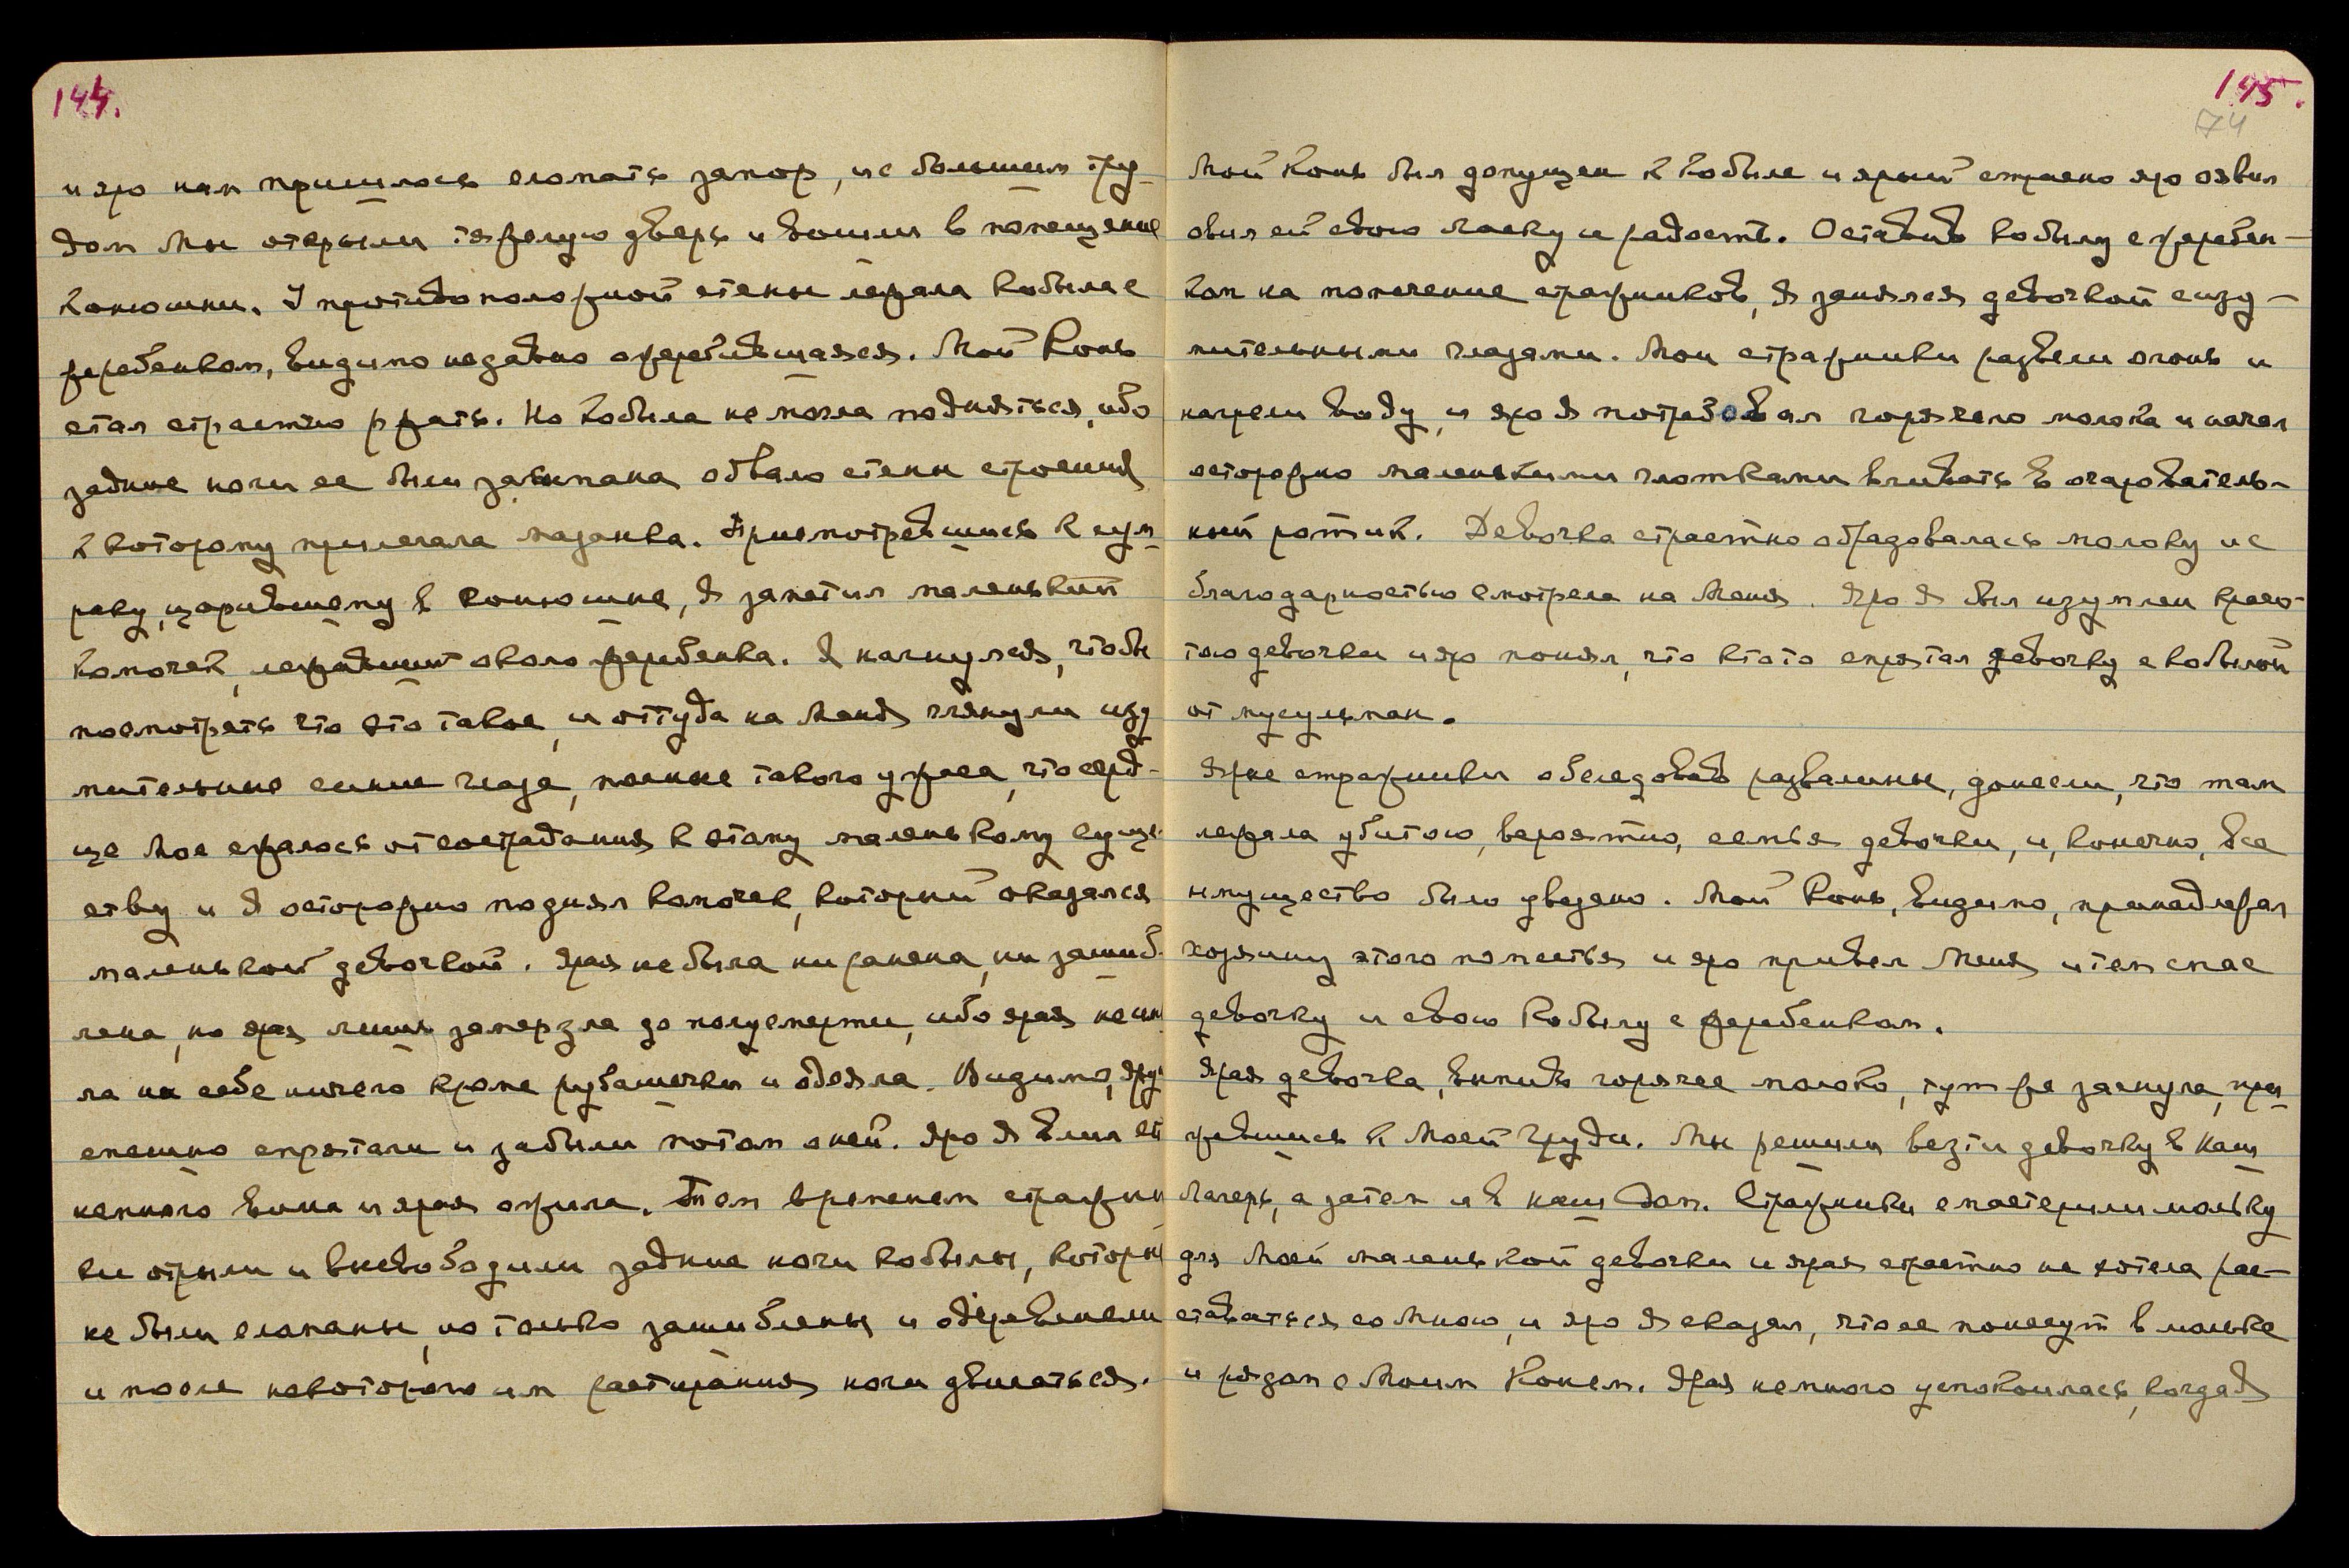 144.
и яро нам пришлось сломать запор, и с большим тру-
дом Мы открыли тяжелую дверь и вошли в помещение
конюшни. У противоположной стены лежала кобыла с
жеребенком, видимо недавно ожеребившаяся. Мой Конь
стал страстно ржать. Но кобыла не могла подняться, ибо
задние ноги ее были обвало стены строения
к которому прилегала мазанка. Присмотревшись к сум-
раку, царившему в конюшне, Я заметил маленький
комочек, лежавший около жеребенка. Я нагнулся, чтобы
посмотреть что это такое, и оттуда на Меня глянули изу
мительные синие глаза, полные такого ужаса, что серд-
це Мое сжалось от сострадания к этому маленькому суще
ству и Я осторожно поднял комочек, который оказался
маленькой девочкой. Ярая не была ни ранена, ни зашиб
лена, но ярая лишь замерзла до полусмерти, ибо ярая не им
ла на себе ничего кроме рубашечки и одеяла. Видимо, яру
спешно спрятали и забыли потом о ней. Яро Я влил ей
немного вина и ярая ожила. Тем временем стражни
ки отрыли и высвободили задние ноги кобылы, которы
не были сломаны, но только зашиблены и одеревенели
и после некоторого им растирания ноги двигаться.
145.
74
Мой Конь был допущен к кобыле и ярый страстно яро
овил ей свою ласку и радость. Оставив кобылу с жеребен-
ком на попечение стражников, Я занялся девочкой с изу-
мительными глазами. Мои стражники развели огонь и
нагрели воду, и яро Я потребовал горячего молока и начал
осторожно маленькими глотками вливать в очарователь-
ный ротик. Девочка страстно обрадовалась молоку и с
благодарностью смотрела на Меня. Яро Я был изумлен красо-
тою девочки и яро понял, что кто то спрятал девочку с кобылой
от мусульман.
Ярые стражники обследовав развалины, донесли, что там
лежала убитою, вероятно, семья девочки, и, конечно, все
имущество было увезено. Мой Конь, видимо, принадлежал
хозяину этого поместья и яро привел Меня и тем спас
девочку и свою кобылу с жеребенком.
Ярая девочка, выпив горячее молоко, тут же заснула, при-
жавшись к Моей груди. Мы решили везти девочку в наш
Лагерь, а затем и в наш Дом. Стражники смастерили люльку
для Моей маленькой девочки и ярая страстно не хотела рас-
ставаться со Мною, и яро Я сказал, что ее понесут в люльке
и рядом с Моим Конем. Ярая немного успокоилась, когда Я